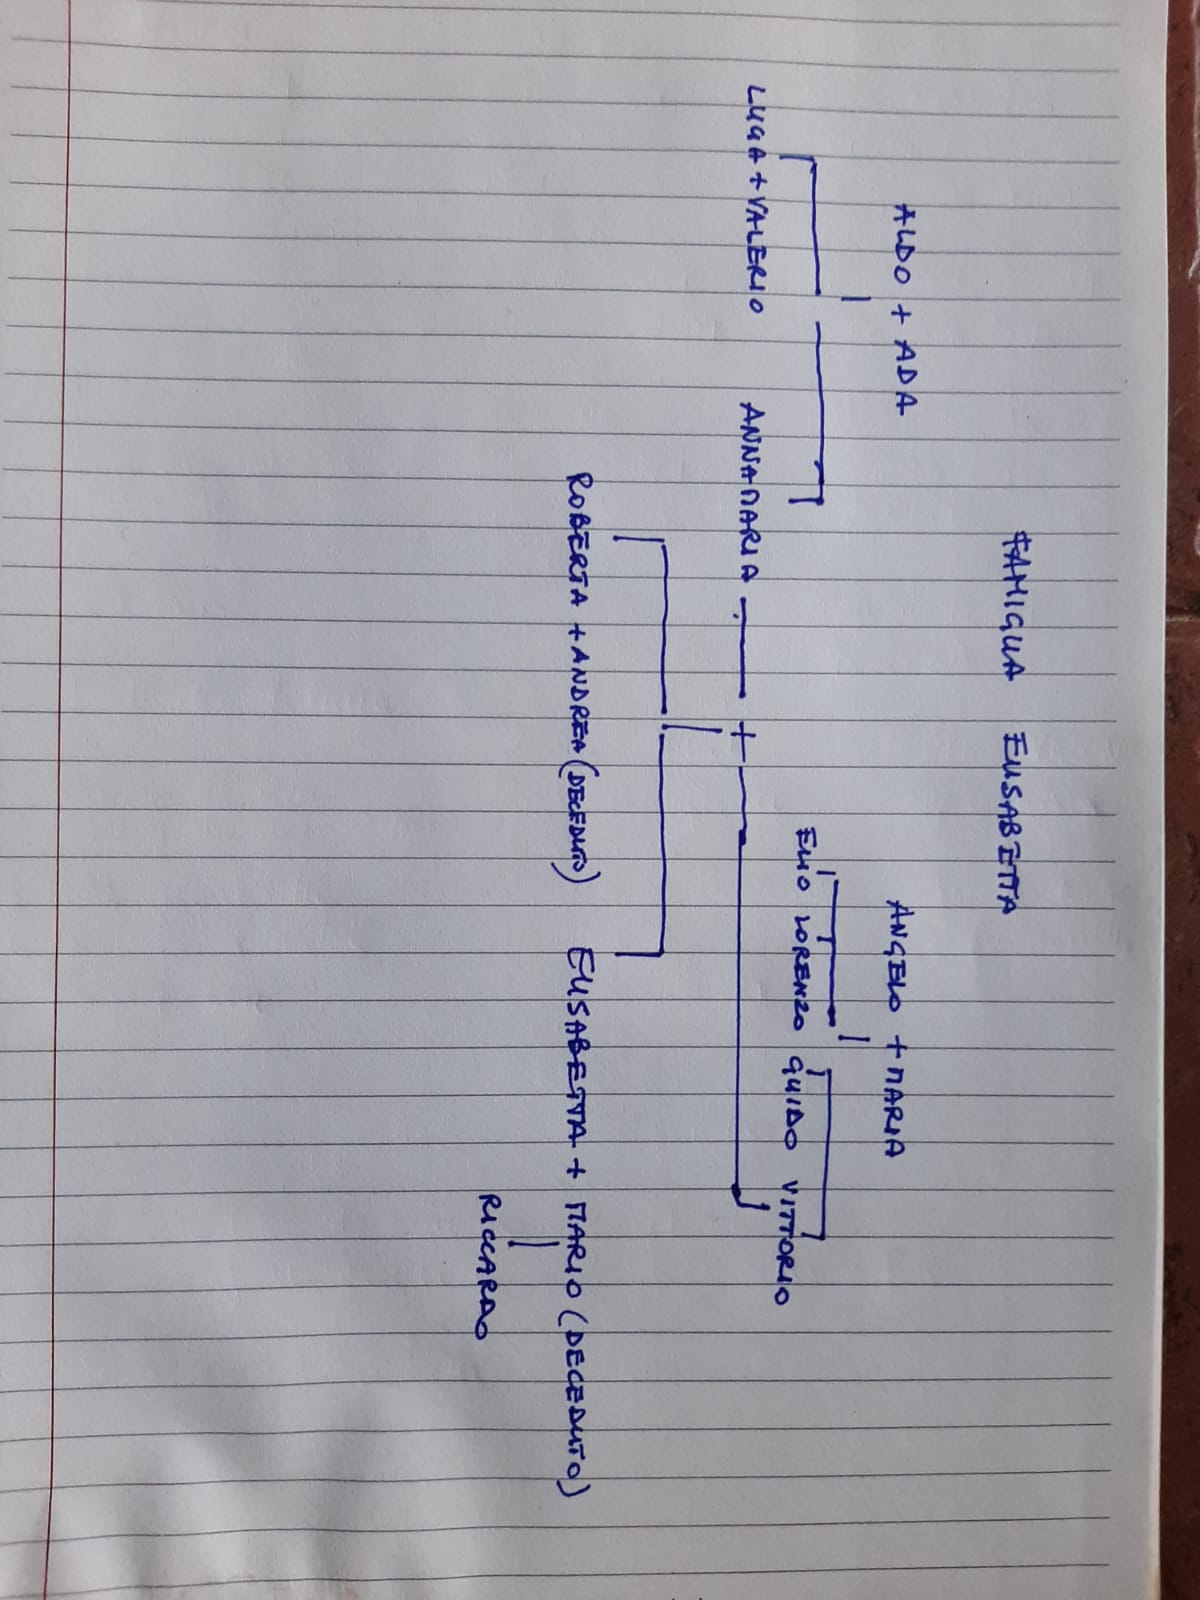 FAMIGLIA ELISABETTA
ALDO + ADA ANGELO + MARIA
ELIO LORENZO GUIDO VITTORIO
LUCA + VALERIO ANNAMARIA +
ROBERTA + ANDREA (DECEDUTO) ELISABETTA + MARIO (DECEDUTO)
RICCARDO